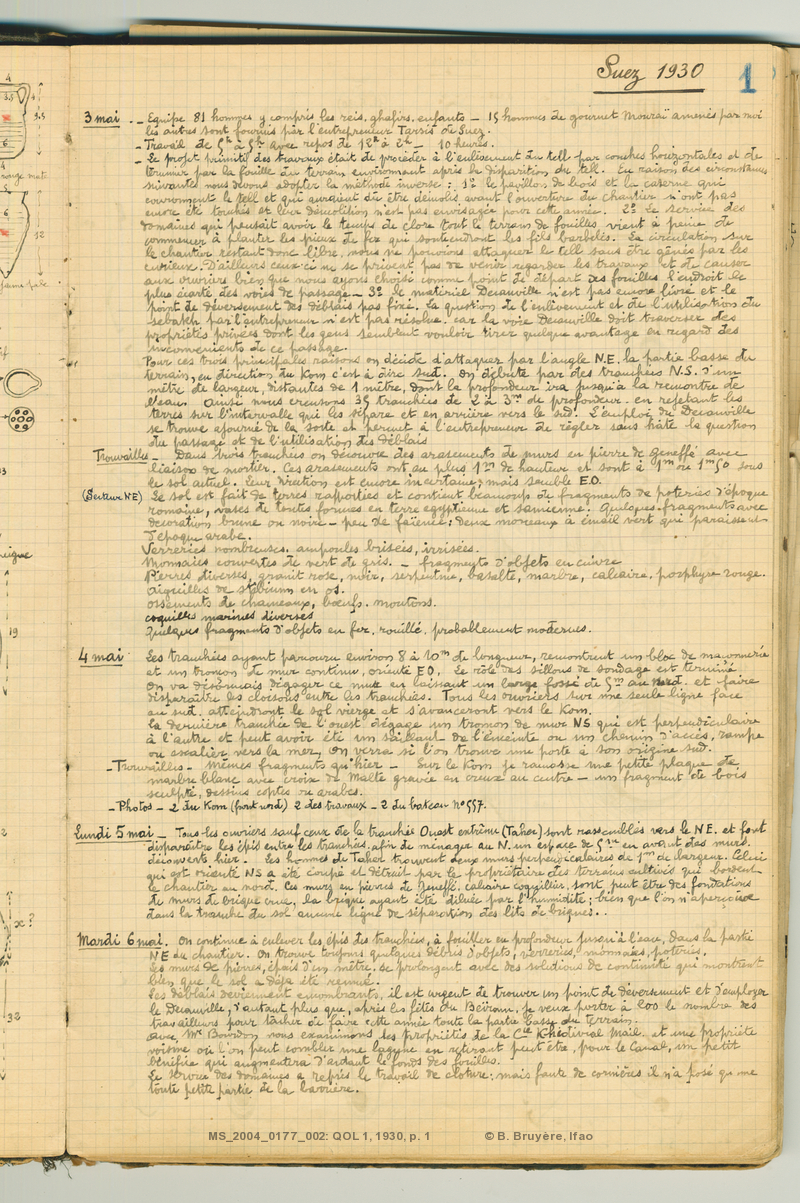 Suez 1930
1
3 mai. _ Equipe 81 hommes y compris les reis, ghafirs, enfants _ 15 hommes de gournet Mouraï amenés par moi
les autres sont fournis par l'entrepreneur Tarsis de Suez.
- Travail de 5h à 5h avec repos de 12h à 2h _ 10 heures.
- Le projet primitif des travaux était de procéder à l'enlèvement du tell par couches horizontales et de
terminer par la fouille du terrain environnant après la disparition du tell. En raison des circonstances
suivantes nous devons adopter la méthode inverse : 1º le pavillon de bois et la caserne qui
couronnent le tell et qui auraient dû être démolis avant l'ouverture du chantier n'ont pas
encore été touchés et leur démolition n'est pas envisagée pour cette année. 2º Le service des
domaines qui pensait avoir le temps de clore tout le terrain de fouilles vient à peine de
commencer à planter les pieux de fer qui soutiendront les fils barbelés. La circulation sur
le chantier restant donc libre, nous ne pouvions attaquer le tell sans être gênés par les
curieux. D'ailleurs ceux-ci ne se privent pas de venir regarder les travaux et de causer
aux ouvriers bien que nous ayons choisi comme point de départ des fouilles l'endroit le
plus écarté des voies de passage _ 3º le matériel Decauville n'est pas encore livré et le
point de déversement des déblais pas fixé. La question de l'enlèvement et de l'utilisation du
sebakh par l'entrepreneur n'est pas résolue car la voie Decauville doit traverser des
propriétés privées dont les gens semblent vouloir tirer quelque avantage en regard des
inconvénients de ce passage.
Pour ces trois principales raisons on décide d'attaquer par l'angle N.E, la partie basse du
terrain, en direction du Kom c'est à dire sud. On débute par des tranchées N.S. d'un
mètre de largeur, distantes de 1 mètre, dont la profondeur ira jusqu'à la rencontre de
l'eau. Ainsi nous creusons 35 tranchées de 2 à 3m de profondeur en rejetant les
terres sur l'intervalle qui les sépare et en arrière vers le sud. L'emploi du Decauville
se trouve ajourné de la sorte et permet à l'entrepreneur de régler sans hâte la question
du passage et de l'utilisation des déblais
Trouvailles _ Dans trois tranchées on découvre des arasements de murs en pierre de Geneffé avec
liaison de mortier. Ces arasements ont au plus 1m de hauteur et sont à 1m ou 1m50 sous
le sol actuel. Leur direction est encore incertaine; mais semble E.O.
(Secteur NE) Le sol est fait de terres rapportées et contient beaucoup de fragments de poteries d'époque
romaine, vases de toutes formes en terre egyptienne et samienne. Quelques fragments avec
décoration brune ou noire _ peu de faïence, deux morceaux à émail vert qui paraissent
d'époque arabe.
Verreries nombreuses. ampoules brisées, irrisées.
Monnaies couvertes de vert de gris. _ fragments d'objets en cuivre
Pierres diverses, granit rose, noir, serpentine, basalte, marbre, calcaire, porphyre rouge.
aiguilles de stibium en os.
ossements de chameaux, bœufs, moutons.
coquilles marines diverses
Quelques fragments d'objets en fer, rouillé, probablement modernes.
4 mai Les tranchées ayant parcouru environ 8 à 10m de longueur, rencontrent un bloc de maçonnerie
et un tronçon de mur continu, orienté EO. Le rôle des sillons de sondage est terminé
On va désormais dégager ce mur en laissant un large fossé de 5m au nord. et faire
disparaître les cloisons entre les tranchées. Tous les ouvriers sur une seule ligne face
au sud, atteindront le sol vierge et s'avanceront vers le Kom.
La dernière tranchée de l'ouest dégage un tronçon de mur NS qui est perpendiculaire
à l'autre et peut avoir été un saillant de l'enceinte ou un chemin d'accès, rampe
ou escalier vers la mer. On verra si l'on trouve une porte à son origine sud.
- Trouvailles - Mêmes fragments qu'hier _ Sur le Kom je ramasse une petite plaque de
marbre blanc avec croix de Malte gravée en creux au centre _ un fragment de bois
sculpté, dessins coptes ou arabes.
- Photos _ 2 du Kom (front nord) 2 des travaux _ 2 du bateau nº 557.
Lundi 5 mai _ Tous les ouvriers sauf ceux de la tranchée Ouest extrême (Taher) sont rassemblés vers le NE. et font
disparaître les épis entre les tranchées, afin de ménager au N. un espace de 5m en avant des murs
découverts hier. Les hommes de Taher trouvent deux murs perpendiculaires de 1m de largeur. Celui
qui est orienté NS a été coupé et détruit par le propriétaire des terrains cultivés qui bordent
le chantier au nord. Ces murs en pierres de Geneffé, calcaire coquillier, sont peut être des fondations
de murs de brique crue, la brique ayant été diluée par l'humidité; bien que l'on n'aperçoive
dans la tranche du sol aucune ligne de séparation des lits de briques..
Mardi 6 mai. On continue à enlever les épis des tranchées, à fouiller en profondeur jusqu'à l'eau, dans la partie
NE du chantier. On trouve toujours quelques débris d'objets, verreries, monnaies, poteries.
Les murs de pierres, épais d'un mètre, se prolongent avec des solutions de continuité qui montrent
bien que le sol a déjà été remué.
Les déblais deviennent encombrants, il est urgent de trouver un point de déversement et d'employer
le Decauville, d'autant plus que, après les fêtes du Beïram, je veux porter à 200 le nombre des
travailleurs pour tâcher de faire cette année toute la partie basse du terrain.
avec Mr Bourdon nous examinons des propriétés de la Cie Khédivial Mail, et une propriété
voisine où l'on peut combler une lagune en retirant peut être, pour le Canal, un petit
bénéfice qui augmentera d'autant le fonds des fouilles.
Le service des domaines a repris le travail de clôture; mais faute de cornières il n'a posé qu'une
toute petite partie de la barrière.
MS_2004_0177_002: QOL 1, 1930, p. 1 © B. Bruyère, Ifao